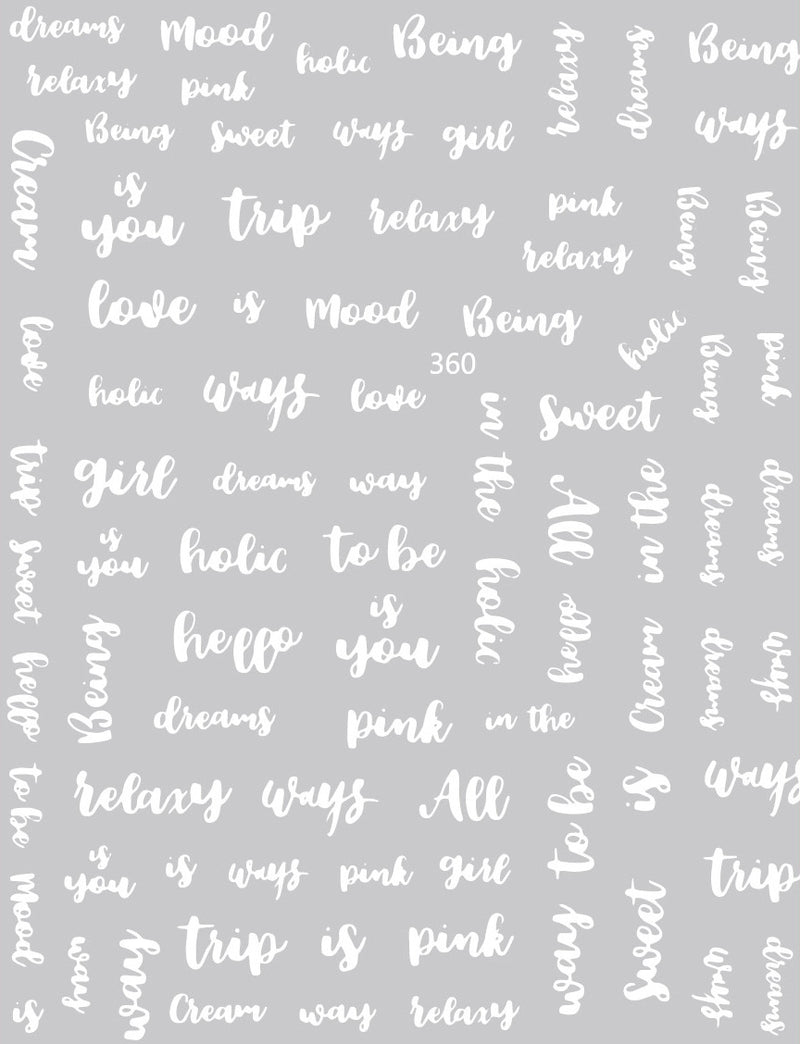 dreams Mood holic Being relaxy dreams Being
relaxy pink
Being sweet ways girl ways
Cream
is
you trip relaxy pink Being Being
relaxy
love is Mood Being holic
love Being pink
360
holic ways love in the sweet
trip girl dreams way All in the dreams dreams
sweet is
you holic to be holic
hello Being hello is
you hello Cream dreams ways
dreams pink in the
to be relaxy ways All way to be is ways
Mood is
you is ways pink girl sweet trip
way way trip is pink ways dreams
is Cream way relaxy